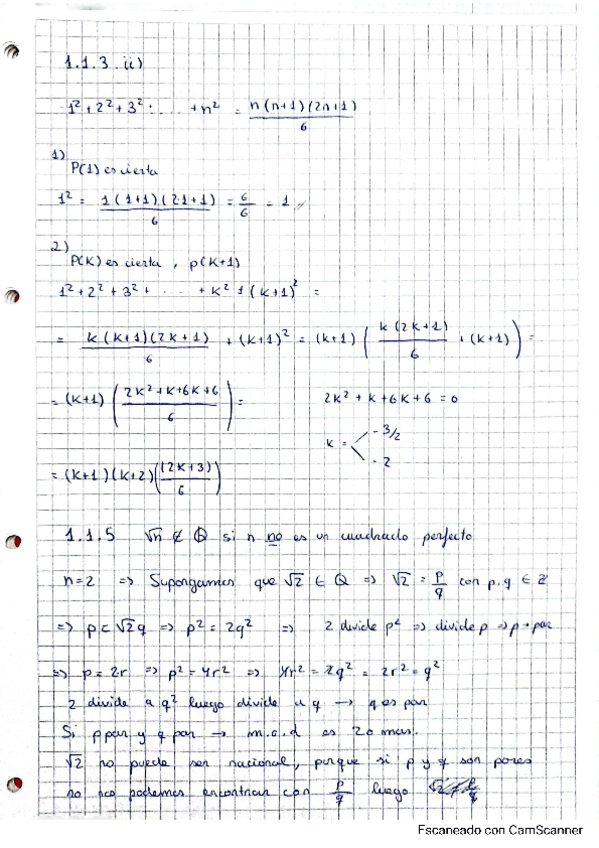 1.1.3. ii)
1² + 2² + 3² + ..... + n² = n(n+1)(2n+1) / 6
1)
P(1) es cierta
1² = 1(1+1)(2·1+1) / 6 = 6/6 = 1 //
2)
P(K) es cierta, p(K+1)
1² + 2² + 3² + ..... + K² + (K+1)² =
= K(K+1)(2K+1) / 6 + (K+1)² = (K+1) ( K(2K+1) / 6 + (K+1) ) =
= (K+1) ( 2K² + K + 6K + 6 / 6 ) = 2K² + K + 6K + 6 = 0
K = -3/2
-2
= (K+1)(K+2) ( (2K+3) / 6 )
1.1.5 √n ∉ Q si n no es un cuadrado perfecto
n=2 => Supongamos que √2 ∈ Q => √2 = p/q con p, q ∈ Z
=> p = √2q => p² = 2q² => 2 divide p² => divide p => p par
=> p = 2r => p² = 4r² => 4r² = 2q² = 2r² = q²
2 divide a q² luego divide a q → q es par
Si p par y q par → m.c.d es 2 o mas.
√2 no puede ser racional, porque si p y q son pares
no podemos encontrar con p/q luego
Escaneado con CamScanner